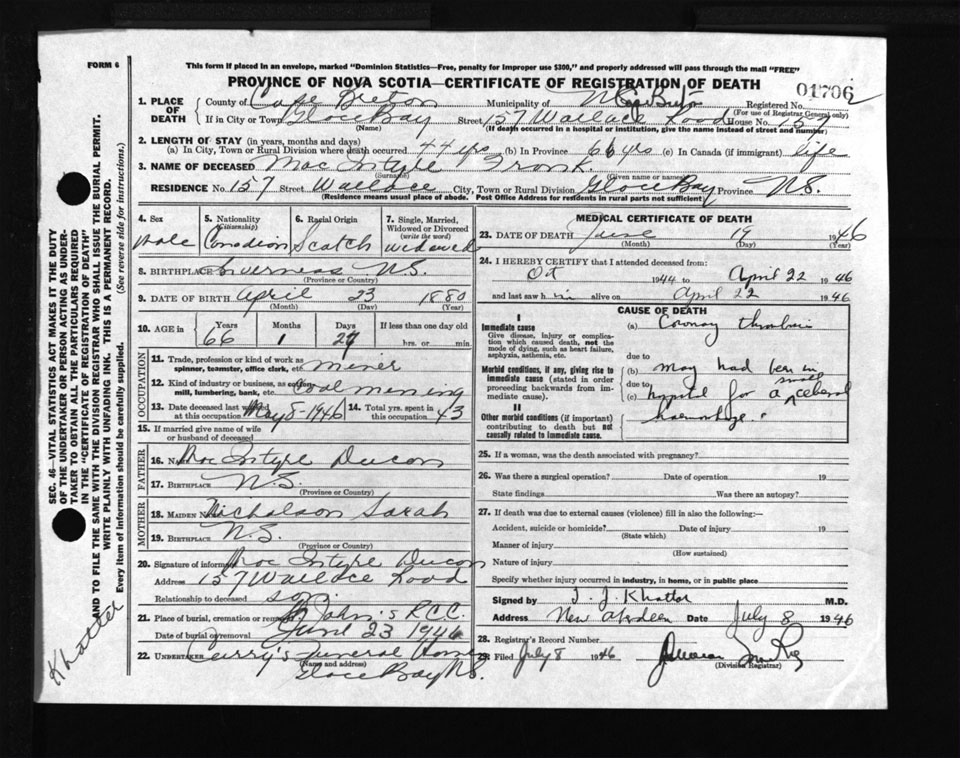 FORM 6
This form if placed in an envelope, marked "Dominion Statistics—Free, penalty for improper use $300," and properly addressed will pass through the mail "FREE"
PROVINCE OF NOVA SCOTIA—CERTIFICATE OF REGISTRATION OF DEATH
01706
1. PLACE OF DEATH
County of Cape Breton Municipality of Registered No.
(For use of Registrar General only)
If in City or Town Glace Bay Street 157 Wallace Road House No. 157
(Name) (If death occurred in a hospital or institution, give the name instead of street and number)
2. LENGTH OF STAY (in years, months and days)
(a) In City, Town or Rural Division where death occurred 44 yrs (b) In Province 66 yrs (c) In Canada (if immigrant) life
3. NAME OF DECEASED Mac Intype Frank
(Surname) (Given name or names)
RESIDENCE No. 157 Street Wallace City, Town or Rural Division Glace Bay Province N.S.
(Residence means usual place of abode. Post Office Address for residents in rural parts not sufficient)
4. Sex Male
5. Nationality (Citizenship) Canadian
6. Racial Origin Scotch
7. Single, Married, Widowed or Divorced (write the word) widowed
8. BIRTHPLACE Inverness N.S.
(Province or Country)
9. DATE OF BIRTH April 23 1880
(Month) (Day) (Year)
10. AGE in Years Months Days If less than one day old
66 1 27 hrs. or min.
OCCUPATION
11. Trade, profession or kind of work as spinner, teamster, office clerk, etc. miner
12. Kind of industry or business, as cotton mill, lumbering, bank, etc. Coal mining
13. Date deceased last worked at this occupation May 8-1946 14. Total yrs. spent in this occupation 43
15. If married give name of wife or husband of deceased
FATHER
16. Name Mac Intype Ducan
17. Birthplace N.S.
(Province or Country)
MOTHER
18. Maiden Name Nicholson Sarah
19. Birthplace N.S.
(Province or Country)
20. Signature of informant Mac Intype Ducan
Address 157 Wallace Road
Relationship to deceased son
21. Place of burial, cremation or removal St John's R.C.C.
Date of burial or removal June 23 1946
22. Undertaker Curry's Funeral Home
(Name and address)
Glace Bay N.S.
MEDICAL CERTIFICATE OF DEATH
23. DATE OF DEATH June 19 1946
(Month) (Day) (Year)
24. I HEREBY CERTIFY that I attended deceased from:
Oct 1944 to April 22 1946
and last saw h im alive on April 22 1946
CAUSE OF DEATH
I
Immediate cause
Give disease, injury or complication which caused death, not the mode of dying, such as heart failure, asphyxia, asthenia, etc.
(a) Coronary thrombosis
due to
Morbid conditions, if any, giving rise to immediate cause (stated in order proceeding backwards from immediate cause).
(b) may had been in
due to
(c) hospital for a small cerebral
haemorrhage.
II
Other morbid conditions (if important) contributing to death but not causally related to immediate cause.
25. If a woman, was the death associated with pregnancy?
26. Was there a surgical operation? Date of operation 19
State findings Was there an autopsy?
27. If death was due to external causes (violence) fill in also the following:—
Accident, suicide or homicide? Date of injury 19
(State which)
Manner of injury
(How sustained)
Nature of injury
Specify whether injury occurred in industry, in home, or in public place
Signed by J. J. Khattar M.D.
Address New Aberdeen Date July 8 1946
28. Registrar's Record Number
29. Filed July 8 1946
(Division Registrar)
SEC. 46—VITAL STATISTICS ACT MAKES IT THE DUTY
OF THE UNDERTAKER OR PERSON ACTING AS UNDERTAKER TO OBTAIN ALL THE PARTICULARS REQUIRED
IN THE "CERTIFICATE OF REGISTRATION OF DEATH"
AND TO FILE THE SAME WITH THE DIVISION REGISTRAR WHO SHALL ISSUE THE BURIAL PERMIT.
WRITE PLAINLY WITH UNFADING INK. THIS IS A PERMANENT RECORD.
Every item of information should be carefully supplied. (See reverse side for instructions.)
Khattar